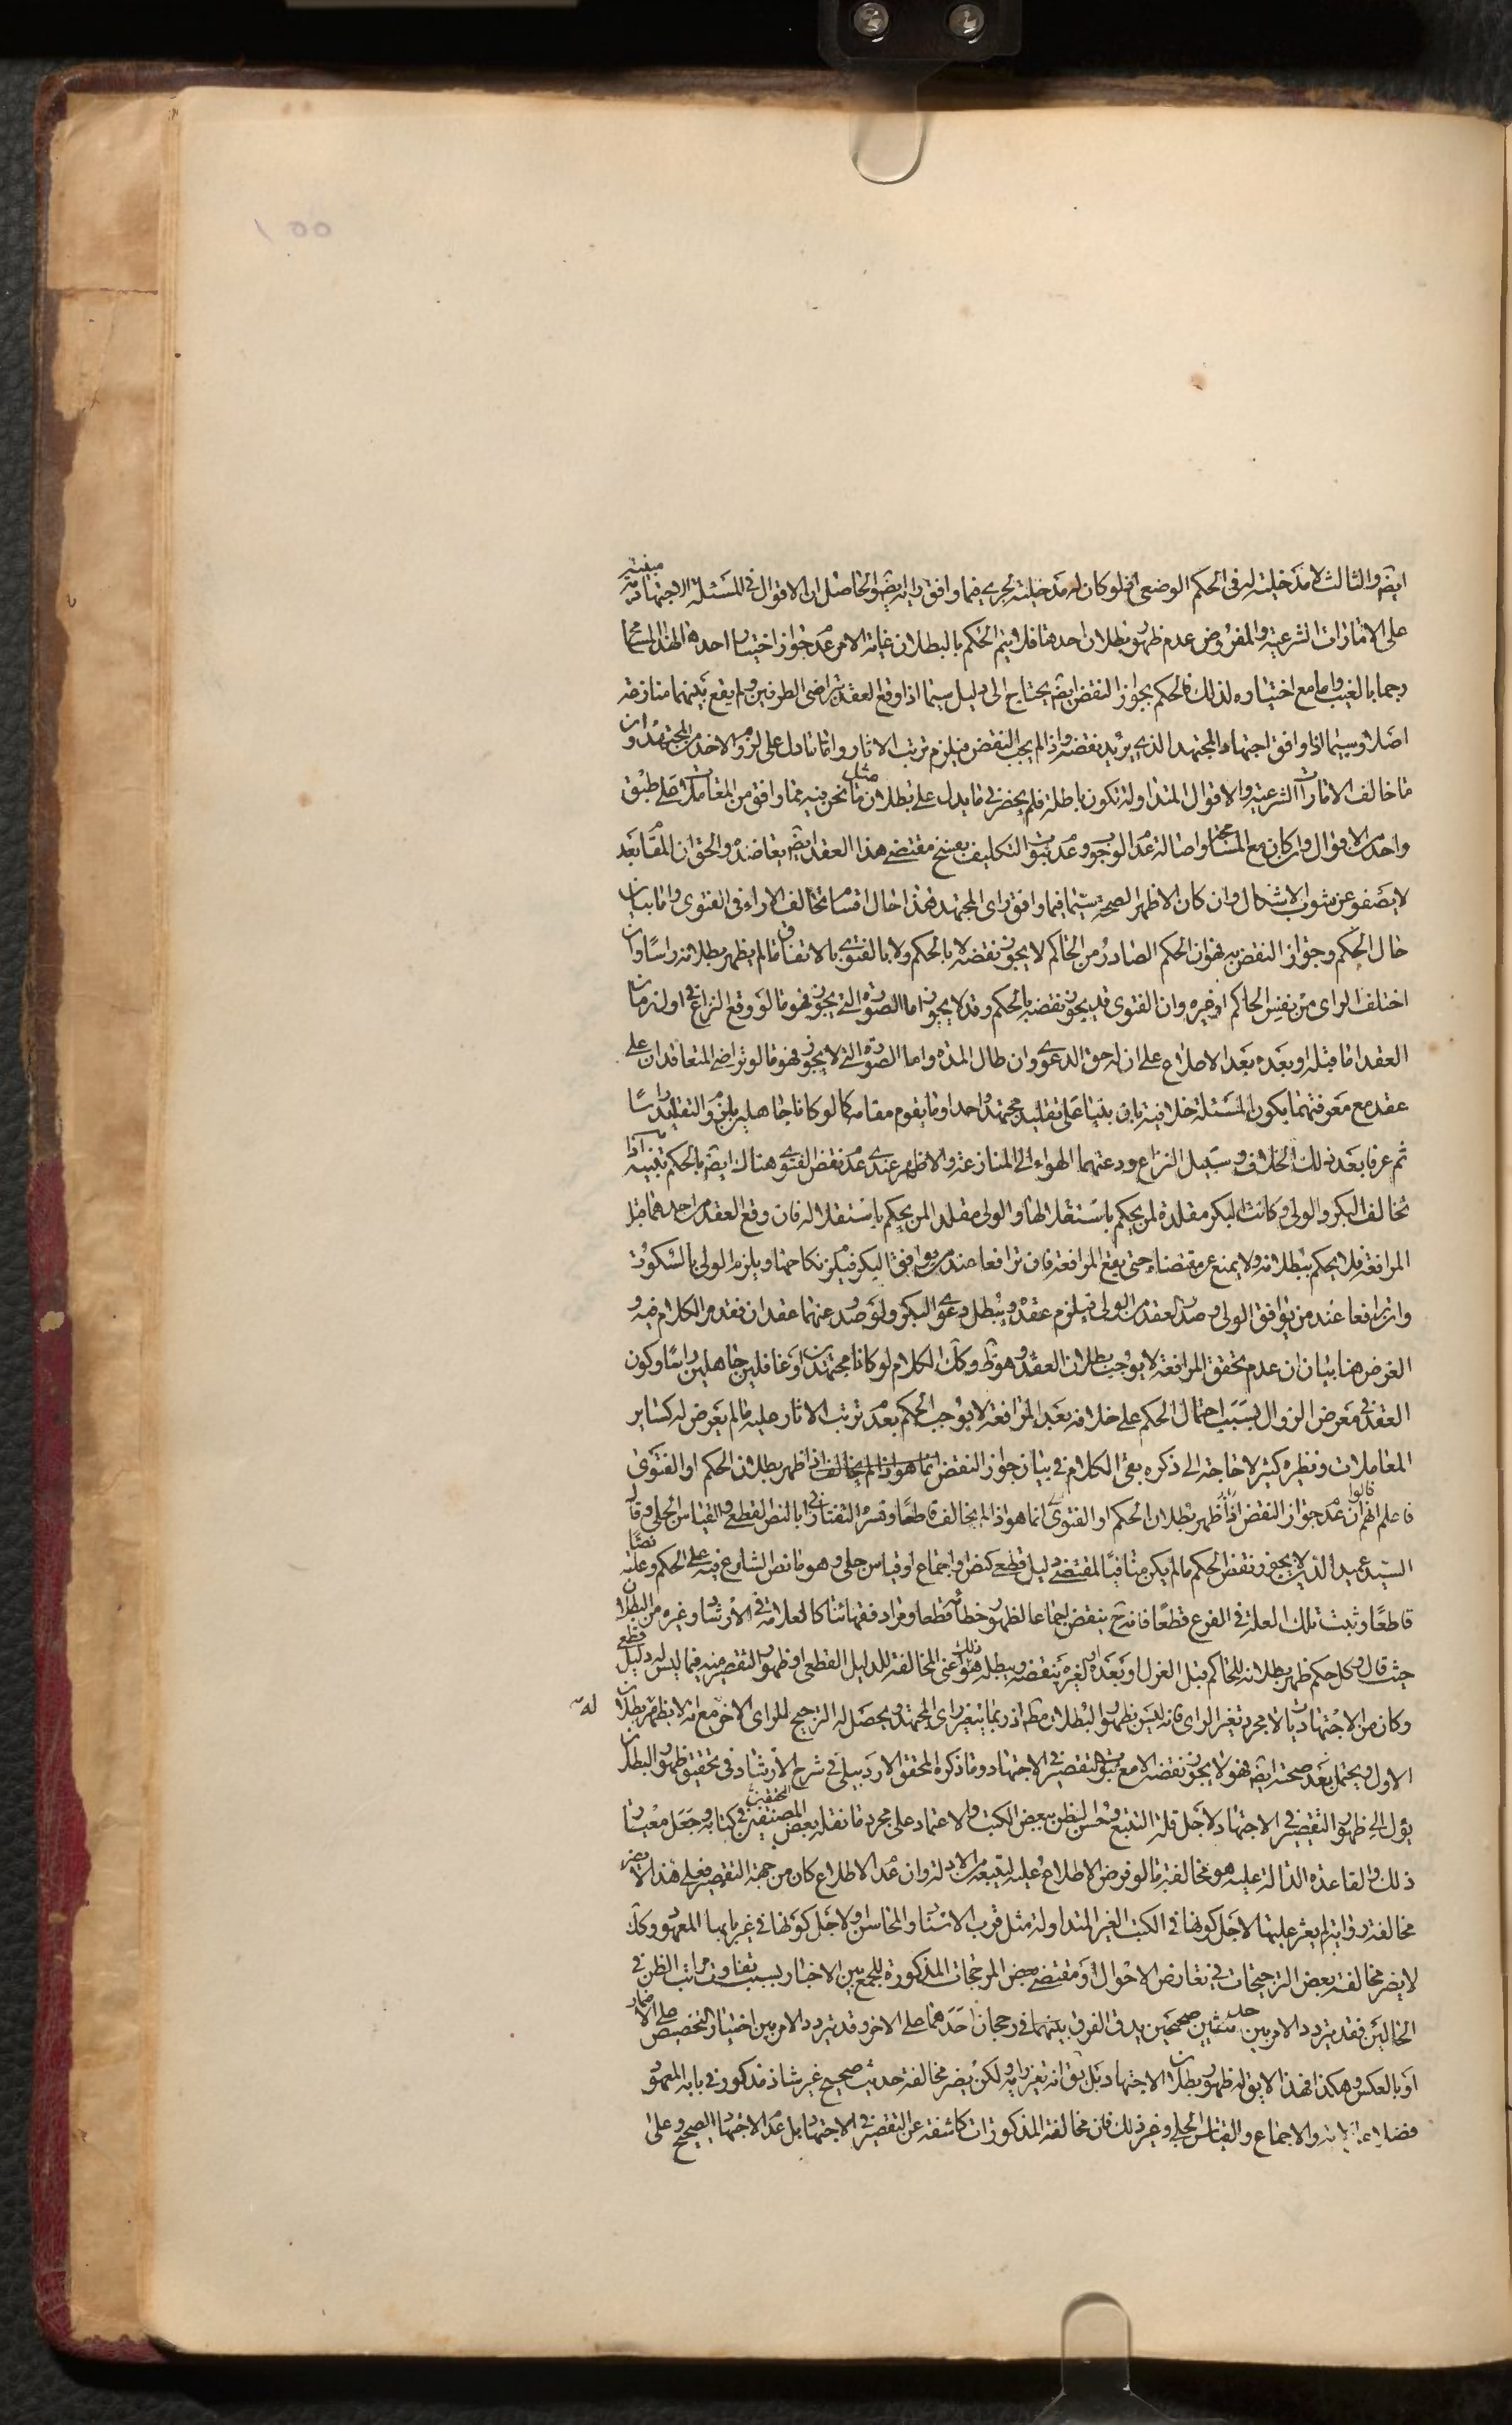 ايضا والثالث لا مدخلية له فى الحكم الوضعى اذ لو كان له مدخلية لجرى فيما وافق رايه ايضا والحاصل ان الاقوال فى المسئلة الاجتهادية مبنية
على الامارات الشرعية والمفروض عدم ظهور بطلان احدها فلا يتم الحكم بالبطلان غاية الامر عدم جواز اختيار احدهما لهذا
رجما بالغيب واما مع اختياره لذلك فالحكم بجواز النقض ايضا يحتاج الى دليل سيما اذا وقع العقد بتراضى الطرفين ولم يقع بينهما منازعة
اصلا وسيما اذا وافق اجتهاد المجتهد الذى يريد نقضه واذا لم يجب النقض فيلزم ترتب الاثار واما ما دل على لزوم الاخذ من المجتهد وان
ما خالف الامارات الشرعية والاقوال المتداولة تكون باطلة فلم يحضرنى ما يدل على بطلان مثل ما نحن فيه مما وافق من المعاملات على طبق
واحد من الاقوال وان كان مع المسامحة واصالة عدم الوجوب وعدم ثبوت التكليف بفسخ مقتضى هذا العقد ايضا يعاضده والحق ان المقام بعد
لا يصفو عن شوب الاشكال وان كان الاظهر الصحة سيما فيما وافق راى المجتهد فهذا حال اقسام تخالف الاراء فى الفتوى واما بيان
حال الحكم وجواز النقض به فهو ان الحكم الصادر من الحاكم لا يجوز نقضه لا بالحكم ولا بالفتوى بالاتفاق ما لم يظهر بطلانه راسا وان
اختلف الراى من نفس الحاكم او غيره وان الفتوى قد يجوز نقضه بالحكم وقد لا يجوز اما الصورة التى يجوز فهو ما لو وقع النزاع فى اول زمان
العقد اما قبله او بعده بعد الاطلاع على ان له حق الدعوى وان طال المدة واما الصورة التى لا يجوز فهو ما لو تراضى المتعاقدان على
عقد مع معرفتهما بكون المسئلة خلافية بان بنيا على تقليد مجتهد واحد او ما يقوم مقامه كما لو كانا جاهلين بلزوم التقليد راسا
ثم عرفا بعد ذلك الخلاف وسبيل النزاع ودعتهما الهواء الى المنازعة والاظهر عندى عدم نقض الفتوى هناك ايضا بالحكم بقى اذا
تخالف البكر والولى وكانت البكر مقلدة لمن يحكم باستقلالها والولى مقلدا لمن يحكم باستقلاله فان وقع العقد من احدهما قبل
المرافعة فلا يحكم ببطلانه ولا يمنع عن مقتضاه حتى يقع المرافعة فان ترافعا عند من يوافق البكر فيلزم نكاحها ويلزم الولى بالسكوت
وان ترافعا عند من يوافق الولى وصدر العقد من الولى فيلزم عقده ويبطل دعوى البكر ولو صدر عنهما عقدان فقد مر الكلام فيه
الغرض هنا بيان ان عدم تحقق المرافعة لا يوجب بطلان العقد وهو ظ وكك الكلام لو كانا مجتهدين او غافلين جاهلين راسا وكون
العقد فى معرض الزوال بسبب احتمال الحكم على خلافه بعد المرافعة لا يوجب الحكم بعدم ترتب الاثار عليه ما لم يعرض له كساير
المعاملات ونظيره كثير لا حاجة الى ذكره بقى الكلام فى بيان جواز النقض اذا ظهر بطلان الحكم او الفتوى
فاعلم انهم قالوا ان عدم جواز النقض اذا ظهر بطلان الحكم او الفتوى انما هو اذا لم يخالف قاطعا وفسره التفتازانى بالنص القطعى والقياس الجلى وقال
السيد عميد الدين لا يجوز نقض الحكم ما لم يكن منافيا لمقتضى دليل قطعى كنص او اجماع او قياس جلى وهو ما نص الشارع فيه على الحكم وعلته نصا
قاطعا وثبت تلك العلة فى الفرع قطعا فانه ح ينقض اجماعا لظهور خطائه قطعا ومراد فقهائنا كالعلامة فى الارشاد وغيره من البطلان
حيث قال وكل حكم ظهر بطلانه للحاكم قبل العزل او بعده او لغيره ينقضه ويبطله هو ذلك اعنى المخالفة للدليل القطعى او ظهور التقصير منه فيما ليس له دليل قطعى
وكان من الاجتهاديات لا مجرد تغير الراى فانه ليس بظهور البطلان مط اذ ربما يتغير راى المجتهد ويحصل له الترجيح للراى الاخر مع انه لا يظهر له بطلان
الاول ويحتمل بعد صحته ايضا فهو لا يجوز نقضه الا مع ثبوت التقصير فى الاجتهاد وما ذكره المحقق الاردبيلى فى شرح الارشاد فى تحقيق ظهور البطلان
يؤل الى ظهور التقصير فى الاجتهاد لاجل قلة التتبع وحسن الظن ببعض الكتب والاعتماد على مجرد ما نقله بعض المصنفين فى كتابه وجعل معيار
ذلك والقاعدة الدالة عليه هو مخالفة ما لو فرض الاطلاع عليه لتتبعه من الادلة وان عدم الاطلاع كان من جهة التقصير فعلى هذا لا يضر
مخالفة رواية لم يعثر عليها لاجل كونها فى الكتب الغير المتداولة مثل قرب الاسناد والمحاسن او لاجل كونها فى غير بابها المعهود وكك
لا يضر مخالفة بعض الترجيحات فى تعارض الاحوال او مقتضى بعض المرجحات المذكورة للجمع بين الاخبار بسبب تفاوت مراتب الظن فى
الحالين فقد يتردد الامر بين حديثين صحيحين يدق الفرق بينهما فى رجحان احدهما على الاخر وقد يتردد الامر بين اختيار التخصيص على الاضمار
او بالعكس وهكذا فهذا لا يق له ظهور بطلان الاجتهاد بل يق انه تغير رايه ولكن يضر مخالفة حديث صحيح غير شاذ مذكور فى بابه المعهود
فضلا عن والاجماع والقياس الجلى وغير ذلك فان مخالفة المذكورات كاشفة عن التقصير فى الاجتهاد بل عدم الاجتهاد الصحيح وعلى